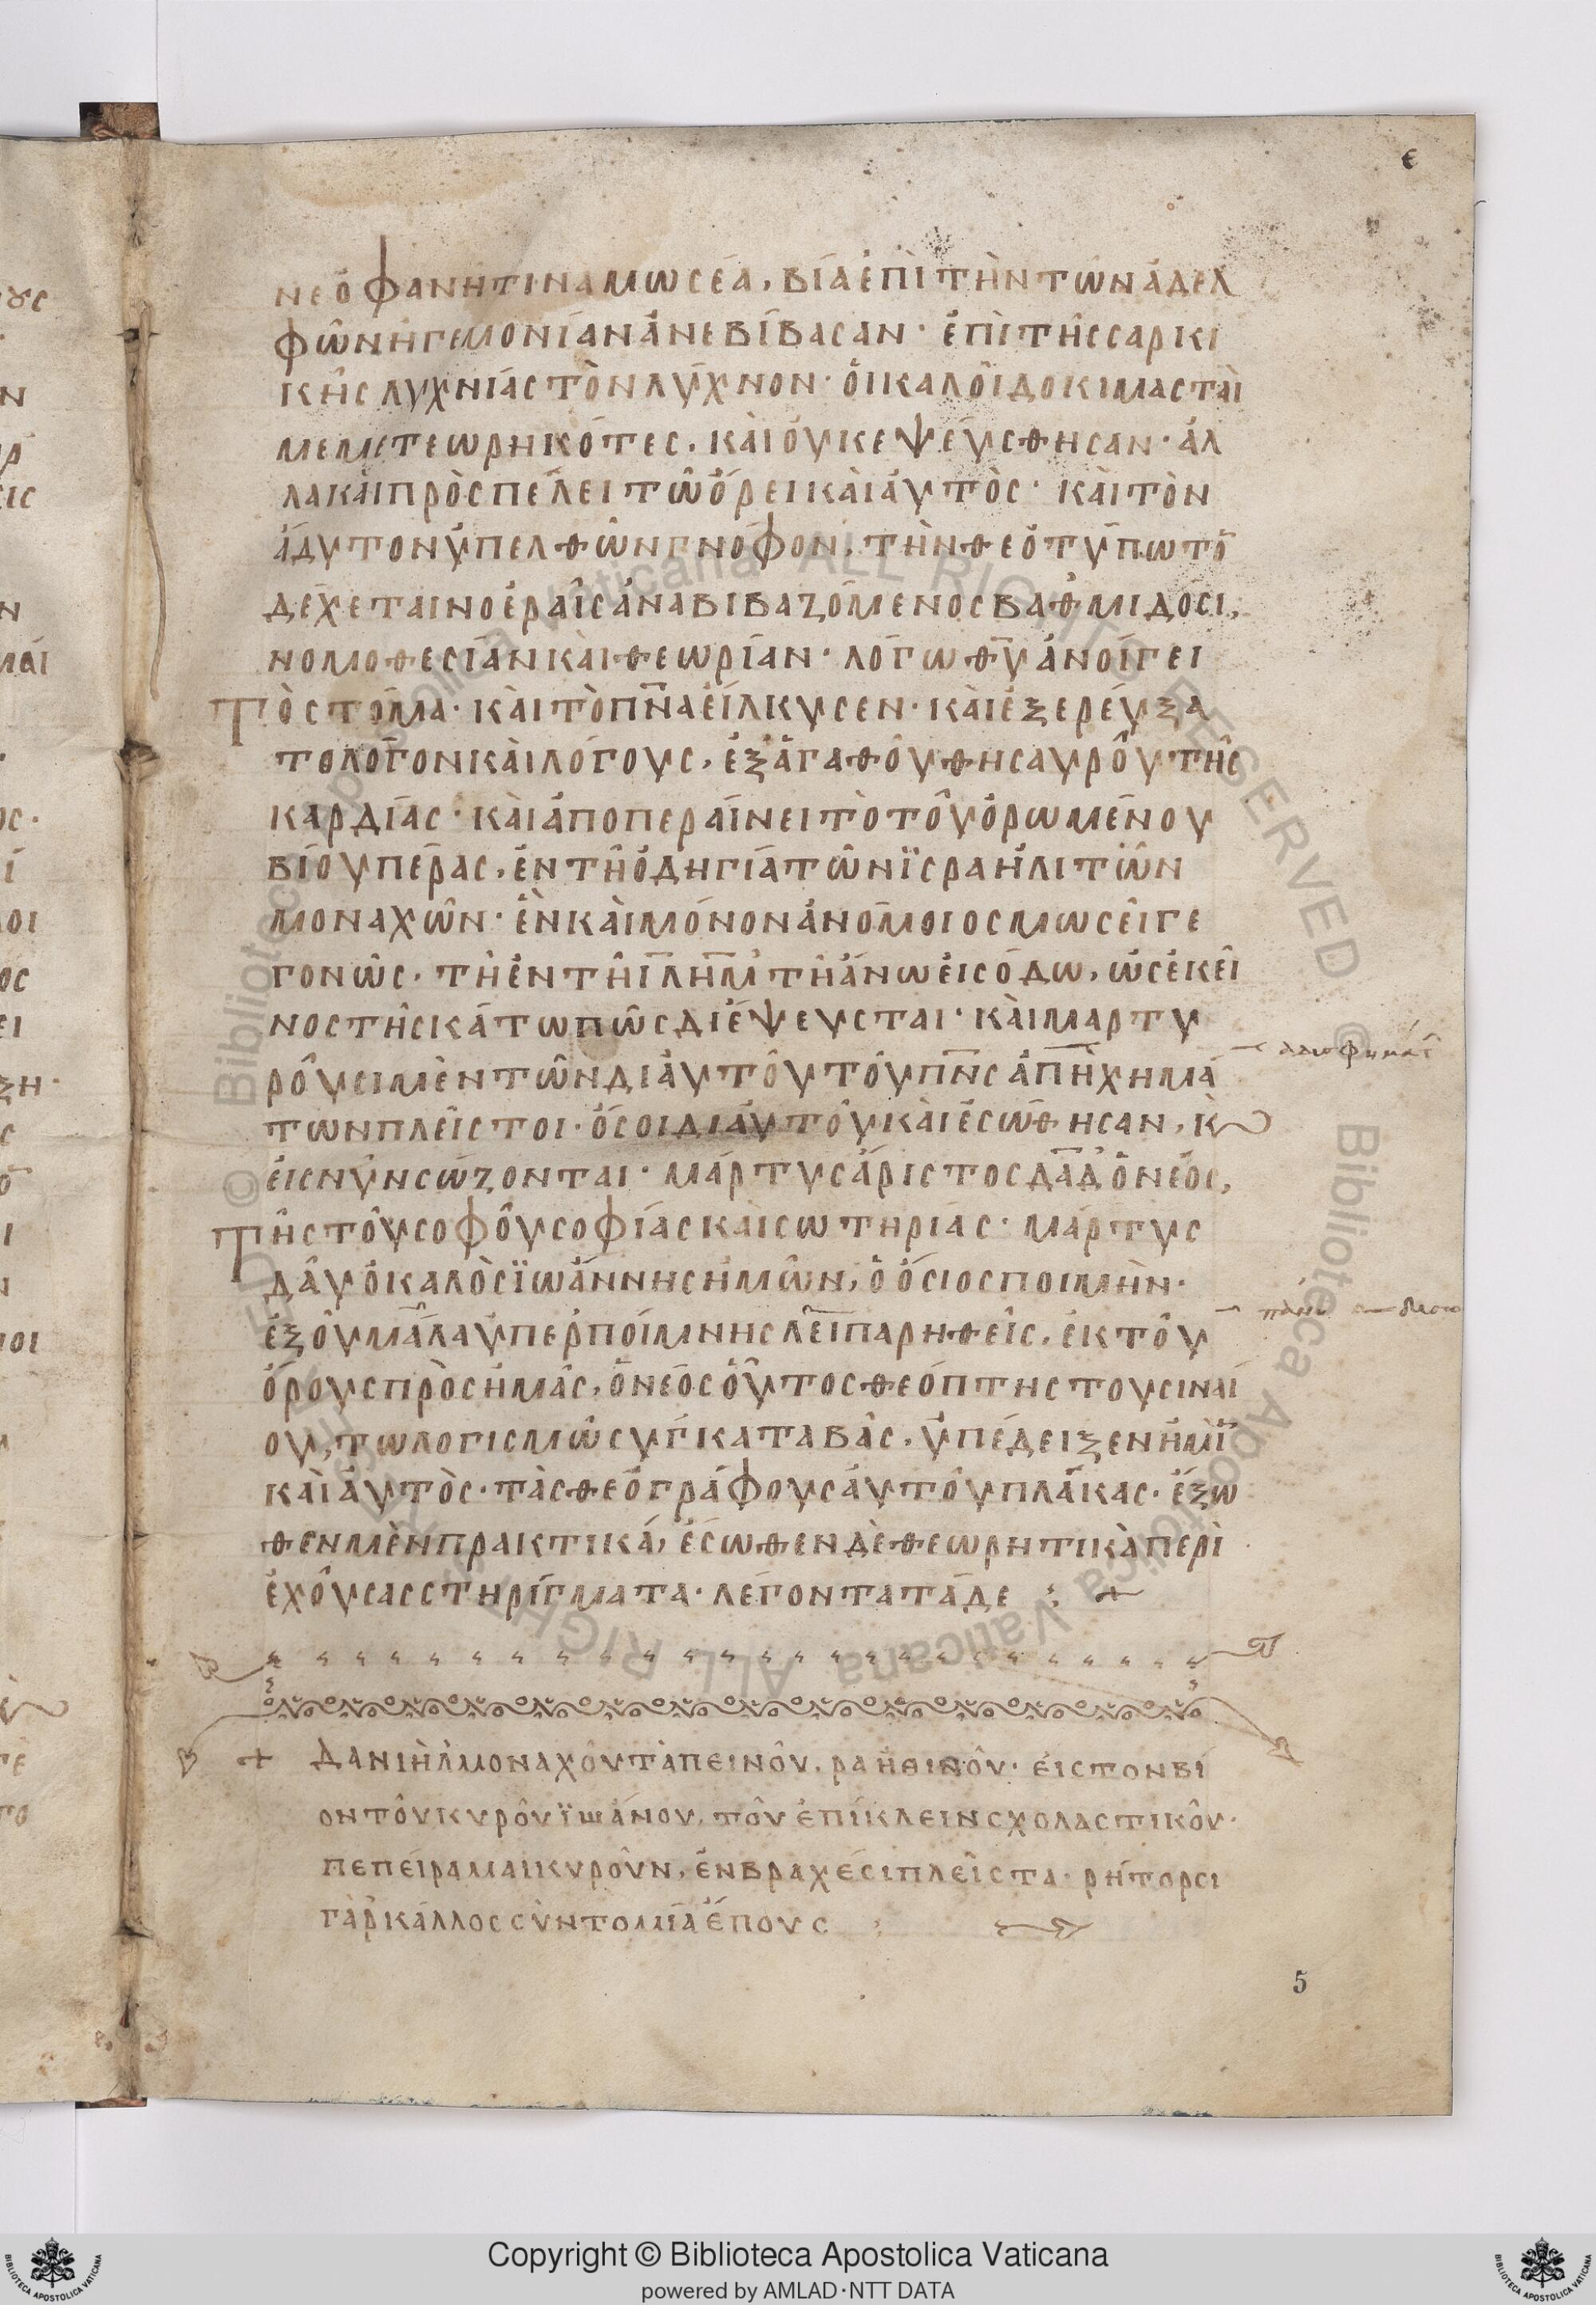 ε
νεόφανῆτιναμωσέα, βία ἐπὶ τὴν τῶν ἀδελ
φῶν ἡγεμονίαν ἀνεβίβασαν· ἐπὶ τῆς σαρκι
κῆς λυχνίας τὸν λύχνον· οἱ καλοὶ δοκιμασταὶ
μεμετεωρηκότες, καὶ οὐκ εψεύσθησαν· ἀλ
λα καὶ προσπελει τῶ ὄρει καὶ ἀυτὸς· καὶ τὸν
ἄδυτον ὑπελθὼν γνόφον, τὴν θεοτύπωτο
δέχεται νοεραῖς ἀναβιβαζόμενος βαθμιδοσι,
νομοθεσίαν καὶ θεωρίαν· λόγω θυ ἀνοίγει
Τὸ στόμα· καὶ τὸ πνα εἵλκυσεν· καὶ ἐξερεύξα
το λόγον καὶ λόγους, ἐξ ἀγαθοῦ θησαυροῦ τῆς
καρδίας· καὶ ἀποπεραίνει τὸ τοῦ ὁρωμένου
βίου πέρας, ἐν τῆ ὁδηγία τῶν ϊσραηλιτῶν
μοναχῶν· ἓν καὶ μόνον ἀνόμοιος μωσεῖ γε
γονὼς, τῆ ἐν τῆ ιλημ τῆ ἄνω εἰσόδω, ὡς ἐκεῖ
νος τῆς κάτω πῶς διέψευσται· καὶ μαρτυ
ροῦσι μὲν τῶν δι ἀυτοῦ τοῦ πνς ἀπηχημά
των πλεῖστοι· ὅσοι δι αὐτοῦ καὶ ἐσώθησαν, κ
εἰς νῦν σώζονται· μάρτυς ἄριστος δαδ ὁ νέος,
Τῆς τοῦ σοφοῦ σοφίας καὶ σωτηρίας· μάρτυς
δ᾽ αὖ ὁ καλὸς ϊωάννης ἡμῶν, ὁ ὅσιος ποιμὴν·
ἐξ οὗ μάλα ὑπερ ποίμνης λειπαρηθεὶς, ἐκ τοῦ
ὄρους πρὸς ἡμᾶς, ὁ νέος οὗτος θεόπτης του σιναί
ου, τω λογισμῶ συγκαταβὰς, ὑπέδειξεν ἡμῖ
καὶ ἀυτὸς· τὰς θεογράφους ἀυτοῦ πλάκας· ἔξω
θεν μὲν πρακτικά, ἔσωθεν δὲ θεωρητικὰ περὶ
ἐχούσας στηρίγματα· λέγοντα τάδε
+ Δανιὴλ μοναχοῦ ταπεινοῦ, ραηθινοῦ· εἰς τον βί
ον τοῦ κυροῦ ϊωάνου, τοῦ ἐπίκλειν σχολαστικοῦ·
πεπείραμαι κυροῦν, ἐν βραχέσι πλεῖστα· ρήτορσι
γὰρ κάλλος συντομία ἔπους
5
Copyright © Biblioteca Apostolica Vaticana
powered by AMLAD·NTT DATA